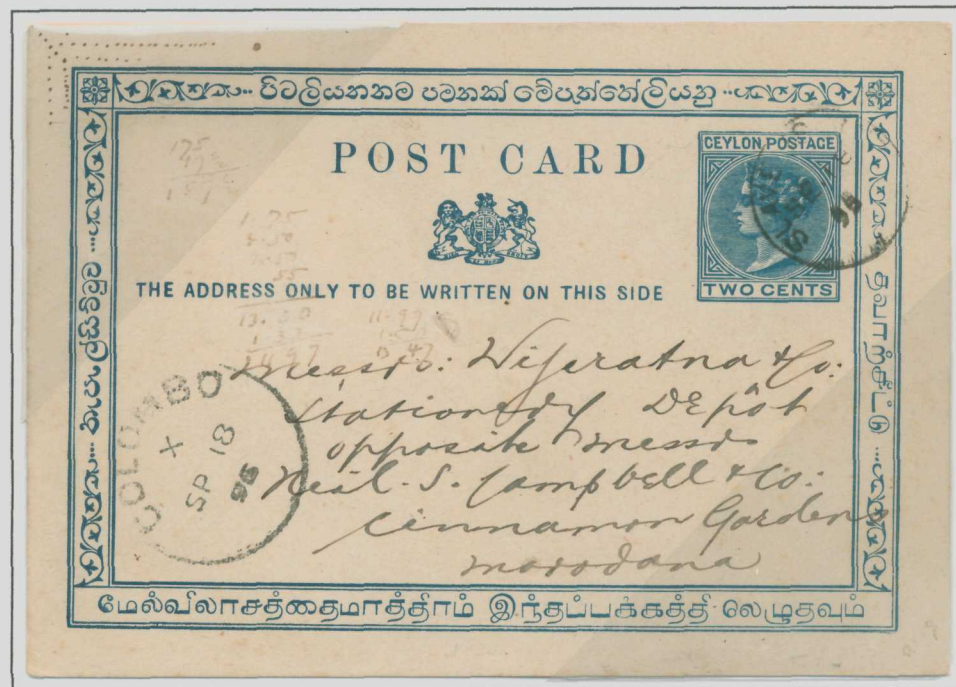 පිටලියනතම පමනක් මේපැත්තේලියනු
POST CARD
CEYLON POSTAGE
TWO CENTS
THE ADDRESS ONLY TO BE WRITTEN ON THIS SIDE
තැපැල්පිලිම
தபாற்சீட்டு
175
1.75
13.50
11.97
14.97
Messrs: Wijeratna & Co:
Stationery DEpôt
opposite Messrs
Neil. S. Campbell & Co:
Cinnamon Gardens
Marodana
COLOMBO
X
SP 18
95
மேல்விலாசத்தைமாத்திரம் இந்தப்பக்கத்தி லெழுதவும்